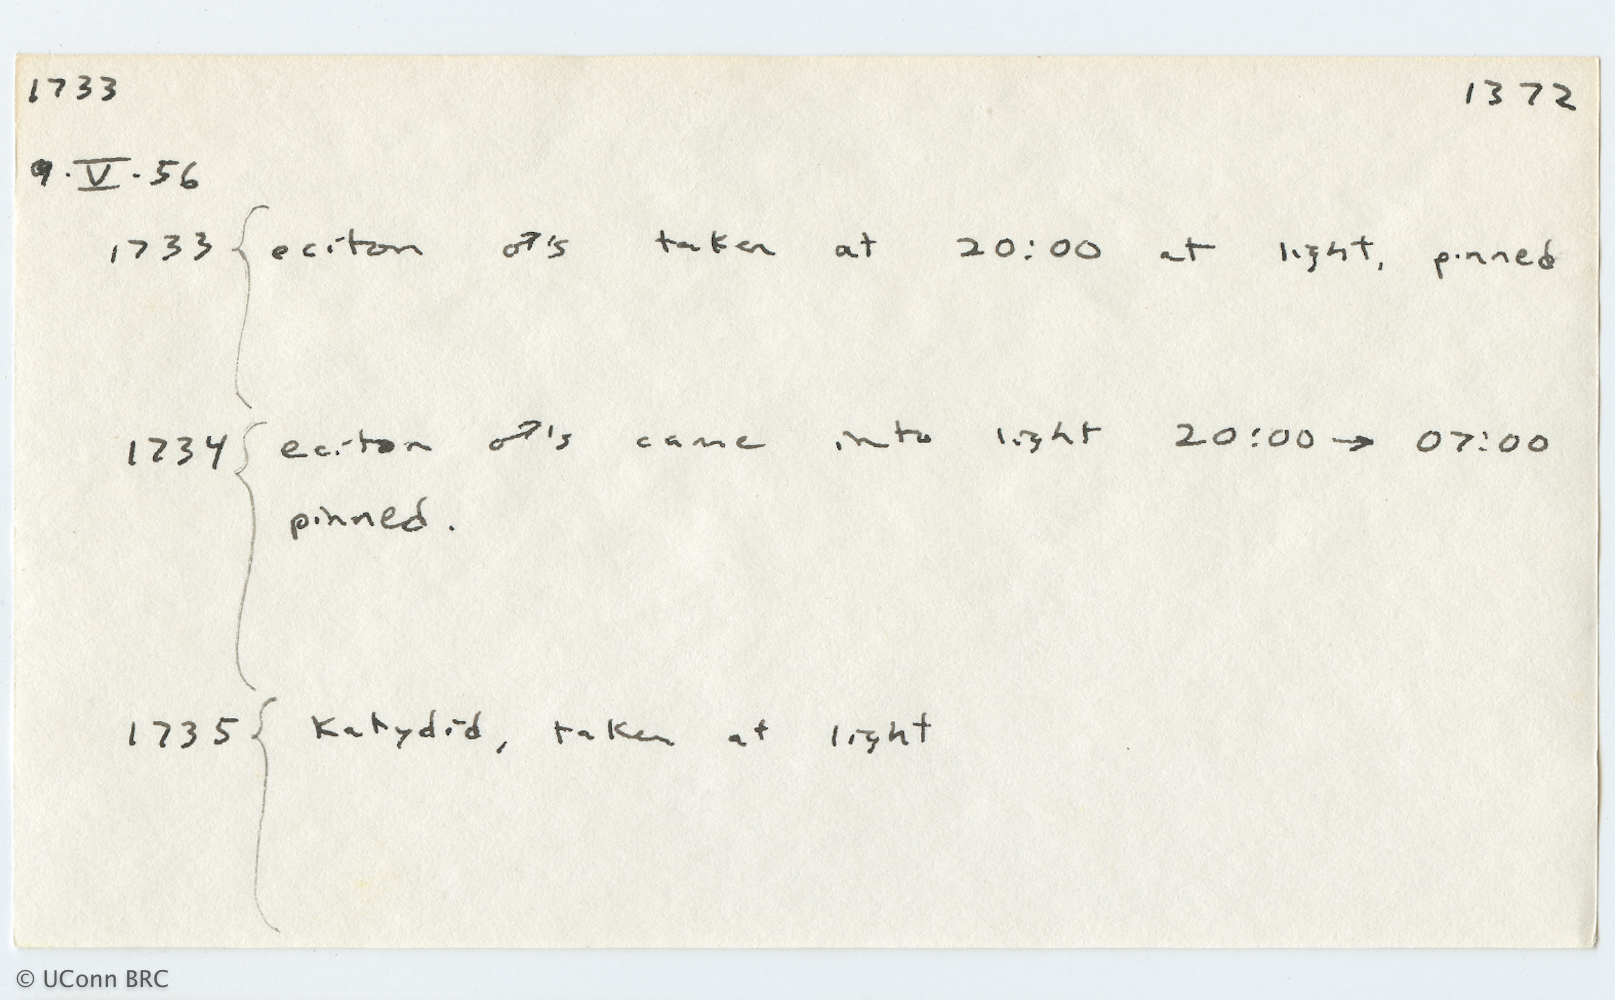 1733 1372
9·V·56
1733 { eciton ♂'s taken at 20:00 at light, pinned
1734 { eciton ♂'s came into light 20:00 → 07:00
pinned.
1735 { Katydid, taken at light
© UConn BRC